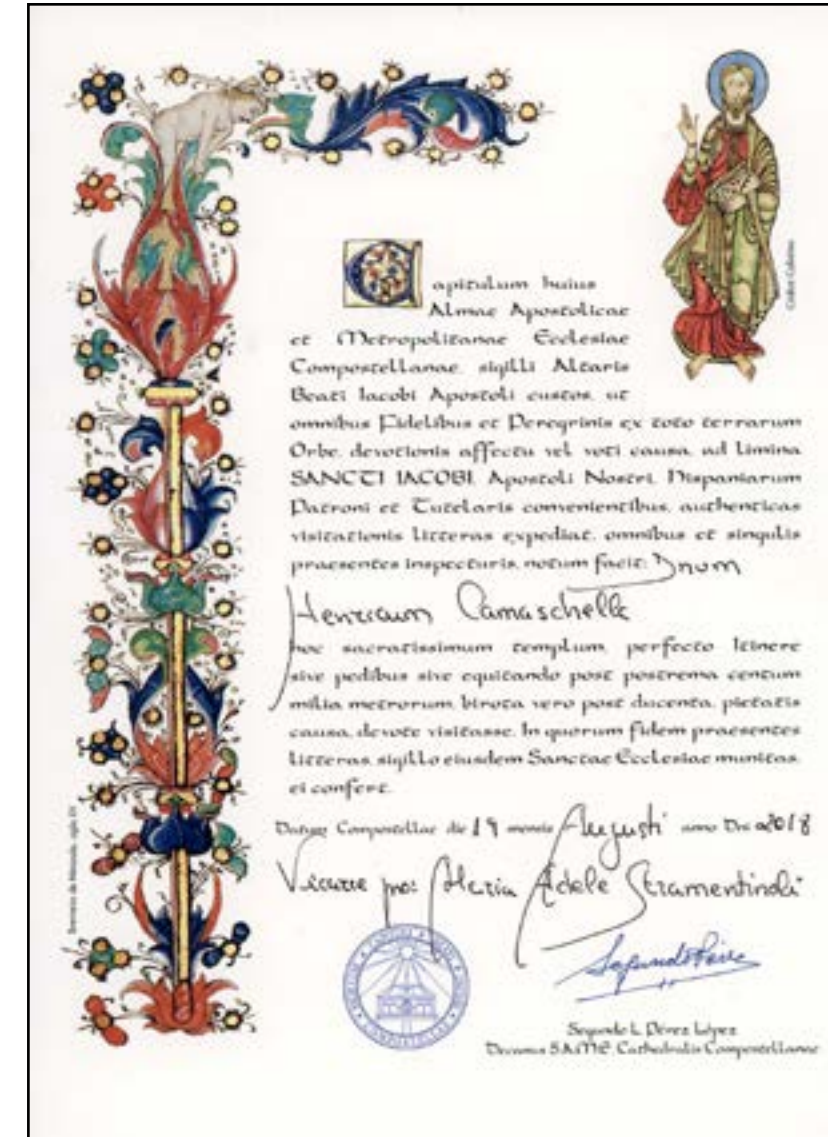 Capitulum huius
Almae Apostolicae
et Metropolitanae Ecclesiae
Compostellanae, sigilli Altaris
Beati Iacobi Apostoli custos, ut
omnibus Fidelibus et Peregrinis ex toto terrarum
Orbe, devotionis affectu vel voti causa, ad limina
SANCTI IACOBI, Apostoli Nostri, Hispaniarum
Patroni et Tutelaris convenientibus, authenticas
visitationis litteras expediat, omnibus et singulis
praesentes inspecturis, notum facit: Dnum
Henricum Camaschella
hoc sacratissimum templum, perfecto Itinere
sive pedibus sive equitando post postrema centum
milia metrorum, birota vero post ducenta, pietatis
causa, devote visitasse. In quorum fidem praesentes
litteras, sigillo eiusdem Sanctae Ecclesiae munitas,
ei confert.
Datum Compostellae die 19 mensis Augusti anno Dni 2018
Vicarie pro: Maria Adele Stramentinoli
Segundo L. Pérez López
Decanus S.A.M.E. Cathedralis Compostellanae
Códice Calixtino
COMPOSTELLAE